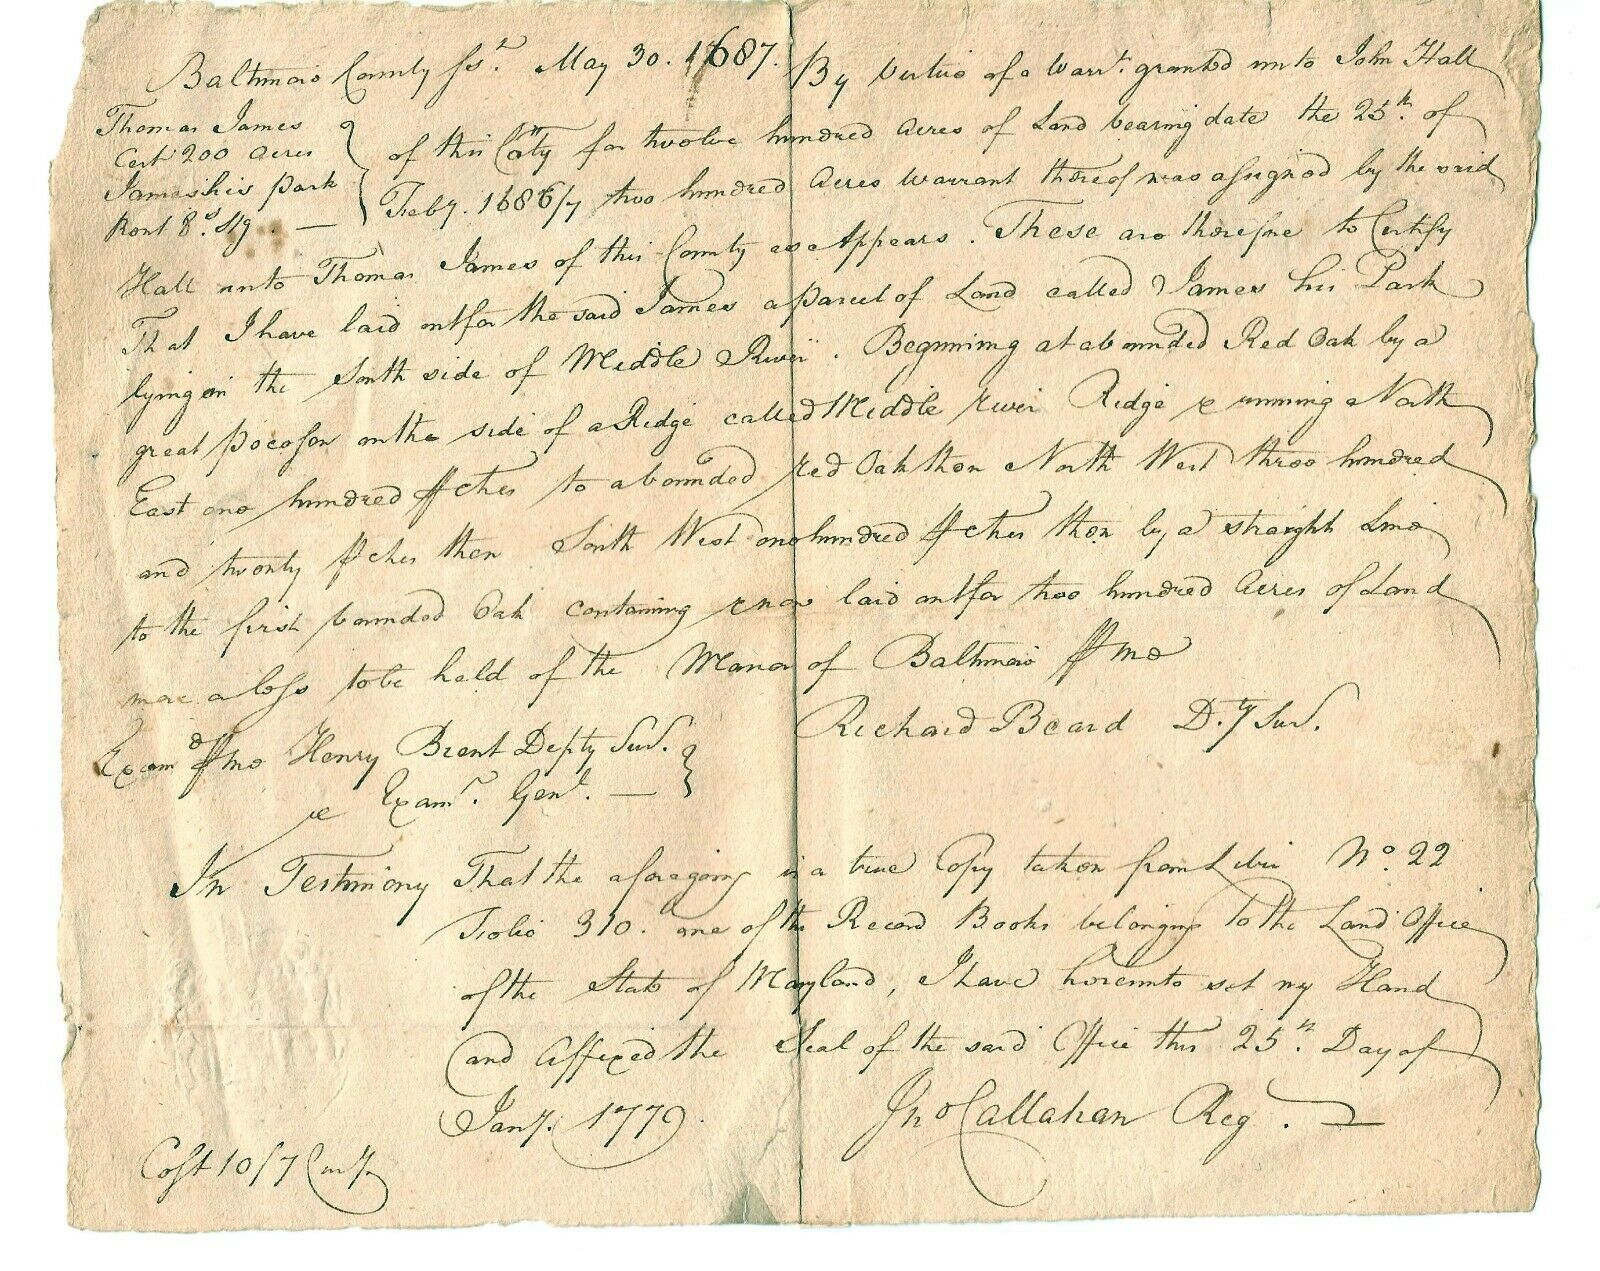 Baltimore County Ss.t May 30. 1687. By Vertue of a Warr.t granted unto John Hall
Thomas James
Cert 200 Acres
James his Park
Rent 8.s Stg. —
of this Co.ty for twelve hundred Acres of Land bearing date the 25.th of
Feby. 1686/7 two hundred Acres Warrant thereof was assigned by the said
Hall unto Thomas James of this County as Appears. These are therefore to Certify
That I have laid out for the said James a parcel of Land called James his Park
lying on the South side of Middle River. Beginning at a bounded Red Oak by a
great pocoson on the side of a Ridge called Middle river Ridge & running North
East one hundred pches to a bounded red Oak then North West three hundred
and twenty pches then South West one hundred pches then by a straight Line
to the first bounded Oak containing & now laid out for two hundred Acres of Land
more or less to be held of the Manor of Baltimore P me
Richard Beard D.ty Sur.
Exam.d P me Henry Brent Depty Sur.
& Exam.r Gen.l —
In Testimony That the aforegoing is a true Copy taken from Libri No 22
Folio 310. one of the Record Books belonging to the Land Office
of the State of Maryland, I have hereunto set my Hand
and Affixed the Seal of the said Office this 25.th Day of
Jany. 1779.
Jno Callahan Reg.
Cost 10/7